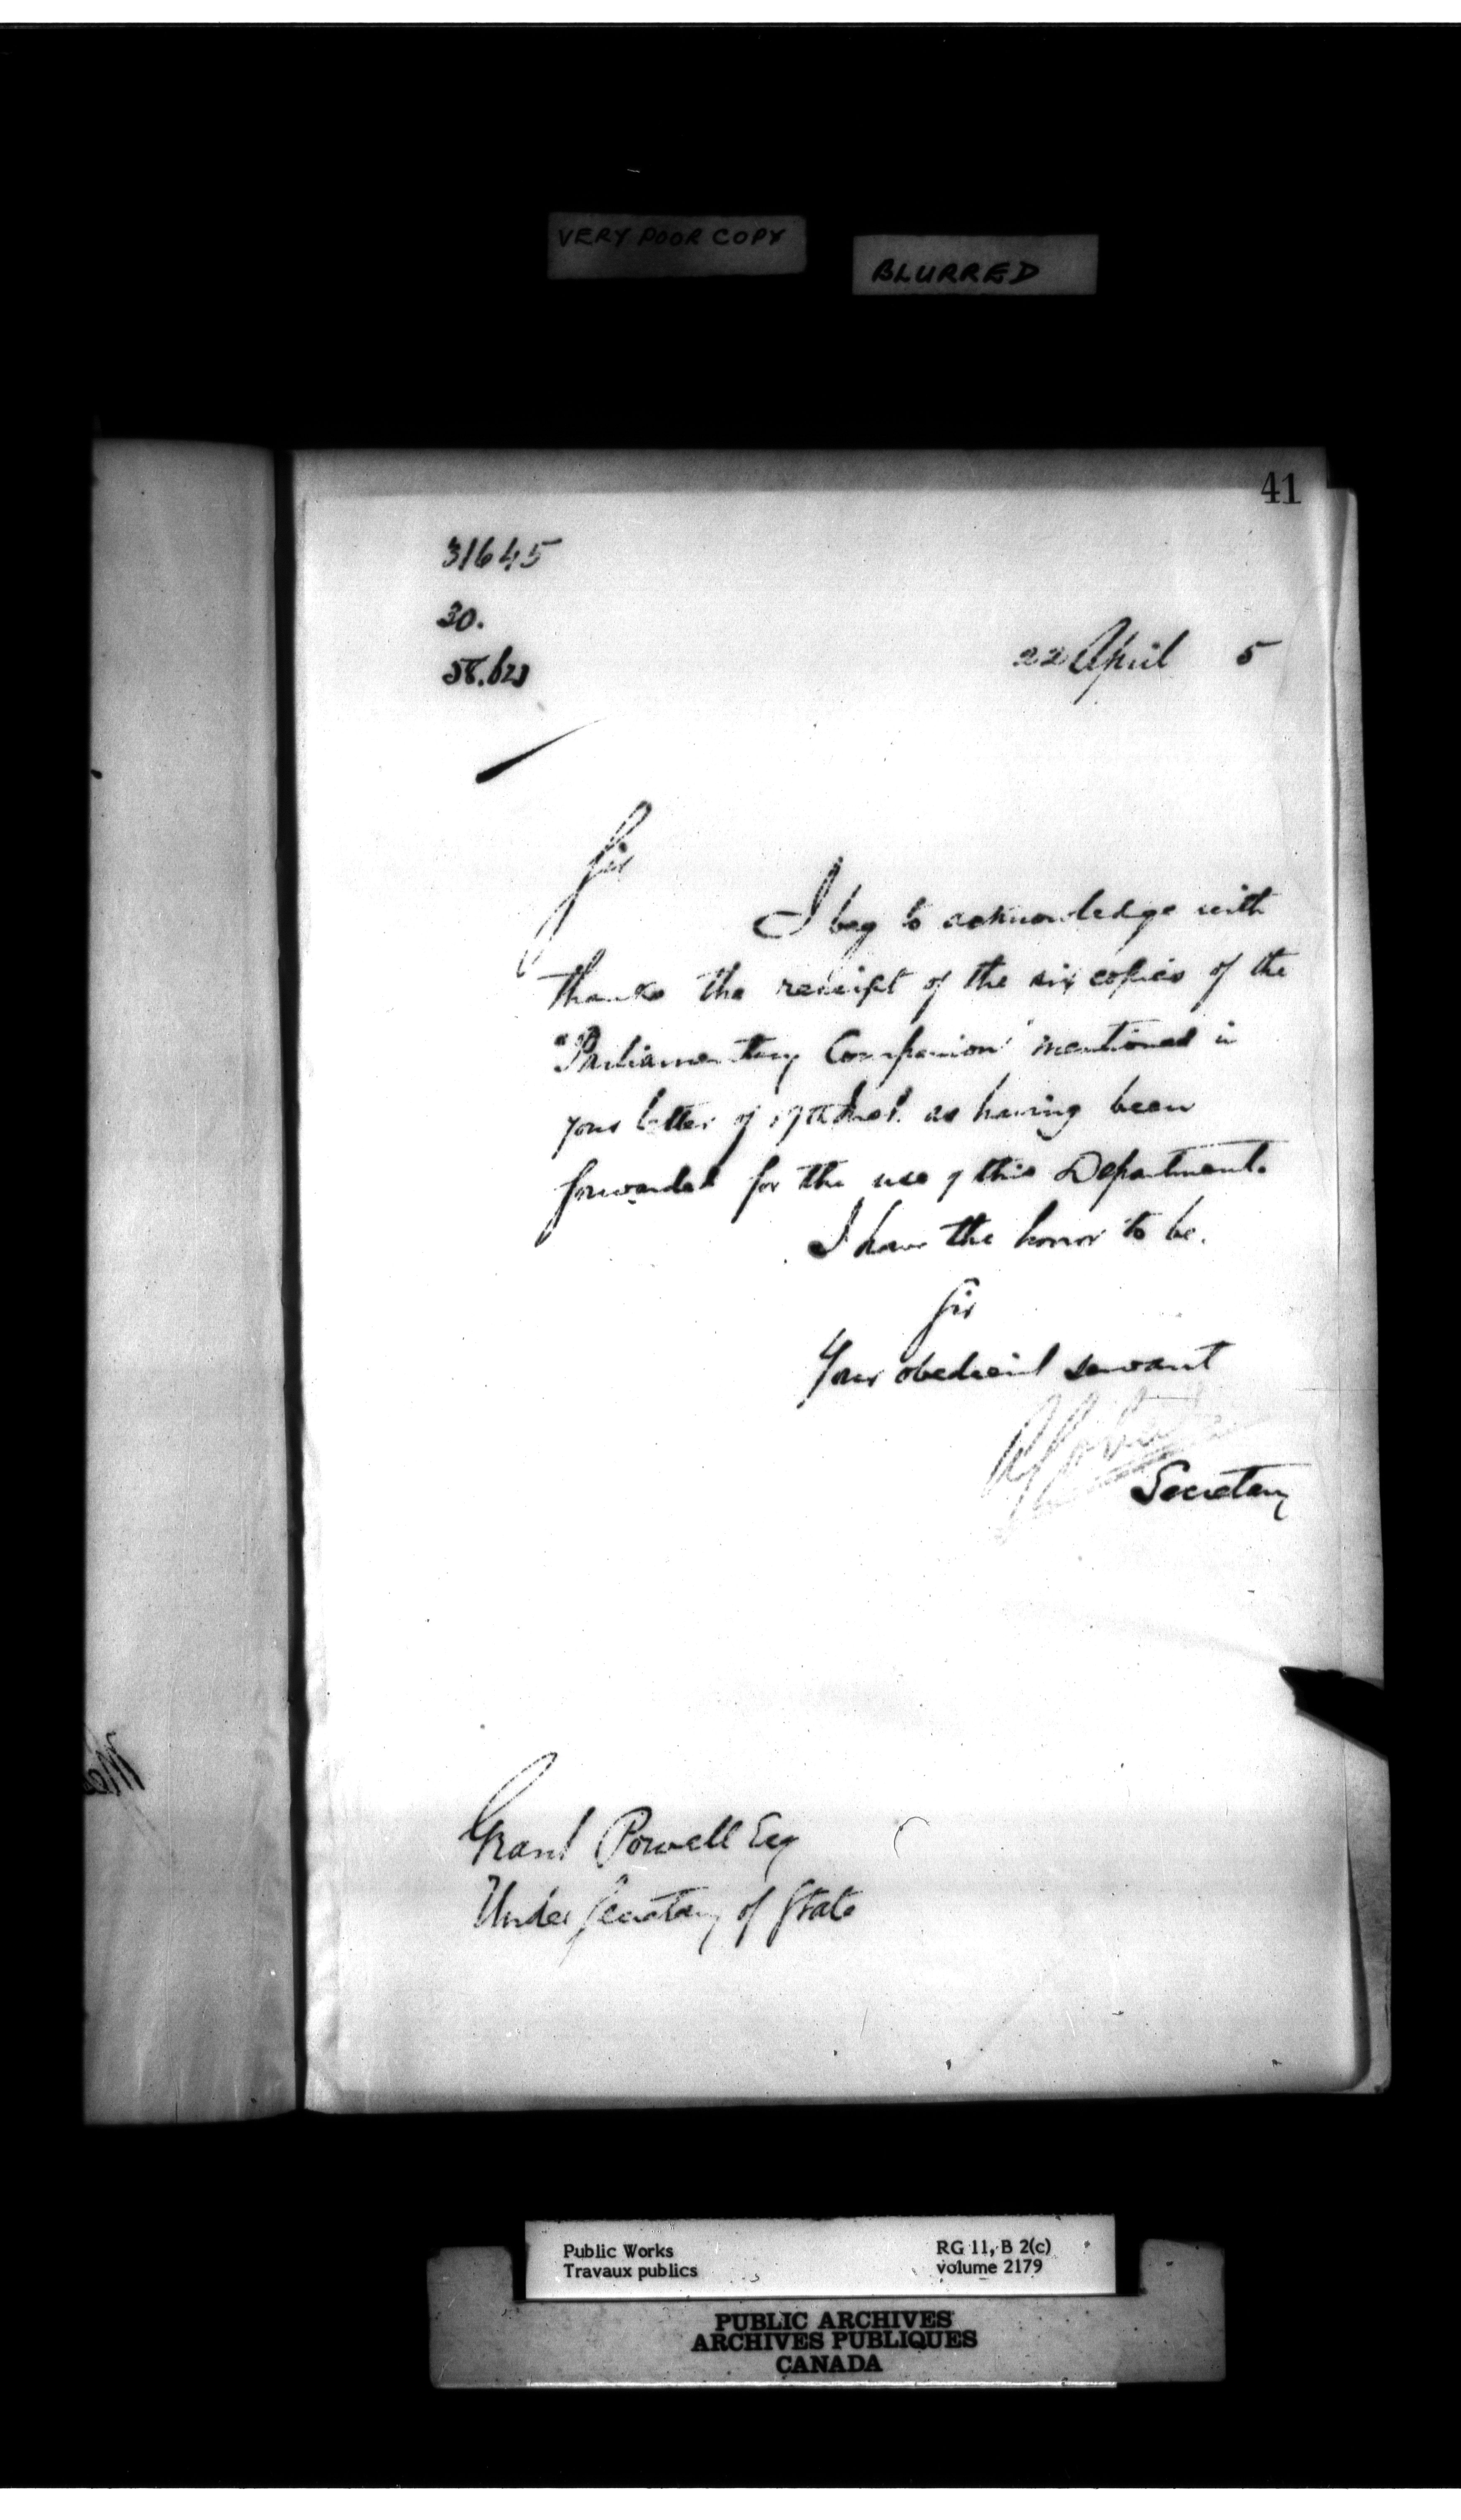 VERY POOR COPY
BLURRED
41
31645
30.
58.623
22 April 5
Sir
I beg to acknowledge with
thanks the receipt of the six copies of the
"Parliamentary Companion" mentioned in
your letter of 17th Inst. as having been
forwarded for the use of this Department.
I have the honor to be.
Sir
Your obedient servant
Secretary
Grant Powell Esq
Under Secretary of State
Public Works
Travaux publics
RG 11, B 2(c)
volume 2179
PUBLIC ARCHIVES
ARCHIVES PUBLIQUES
CANADA